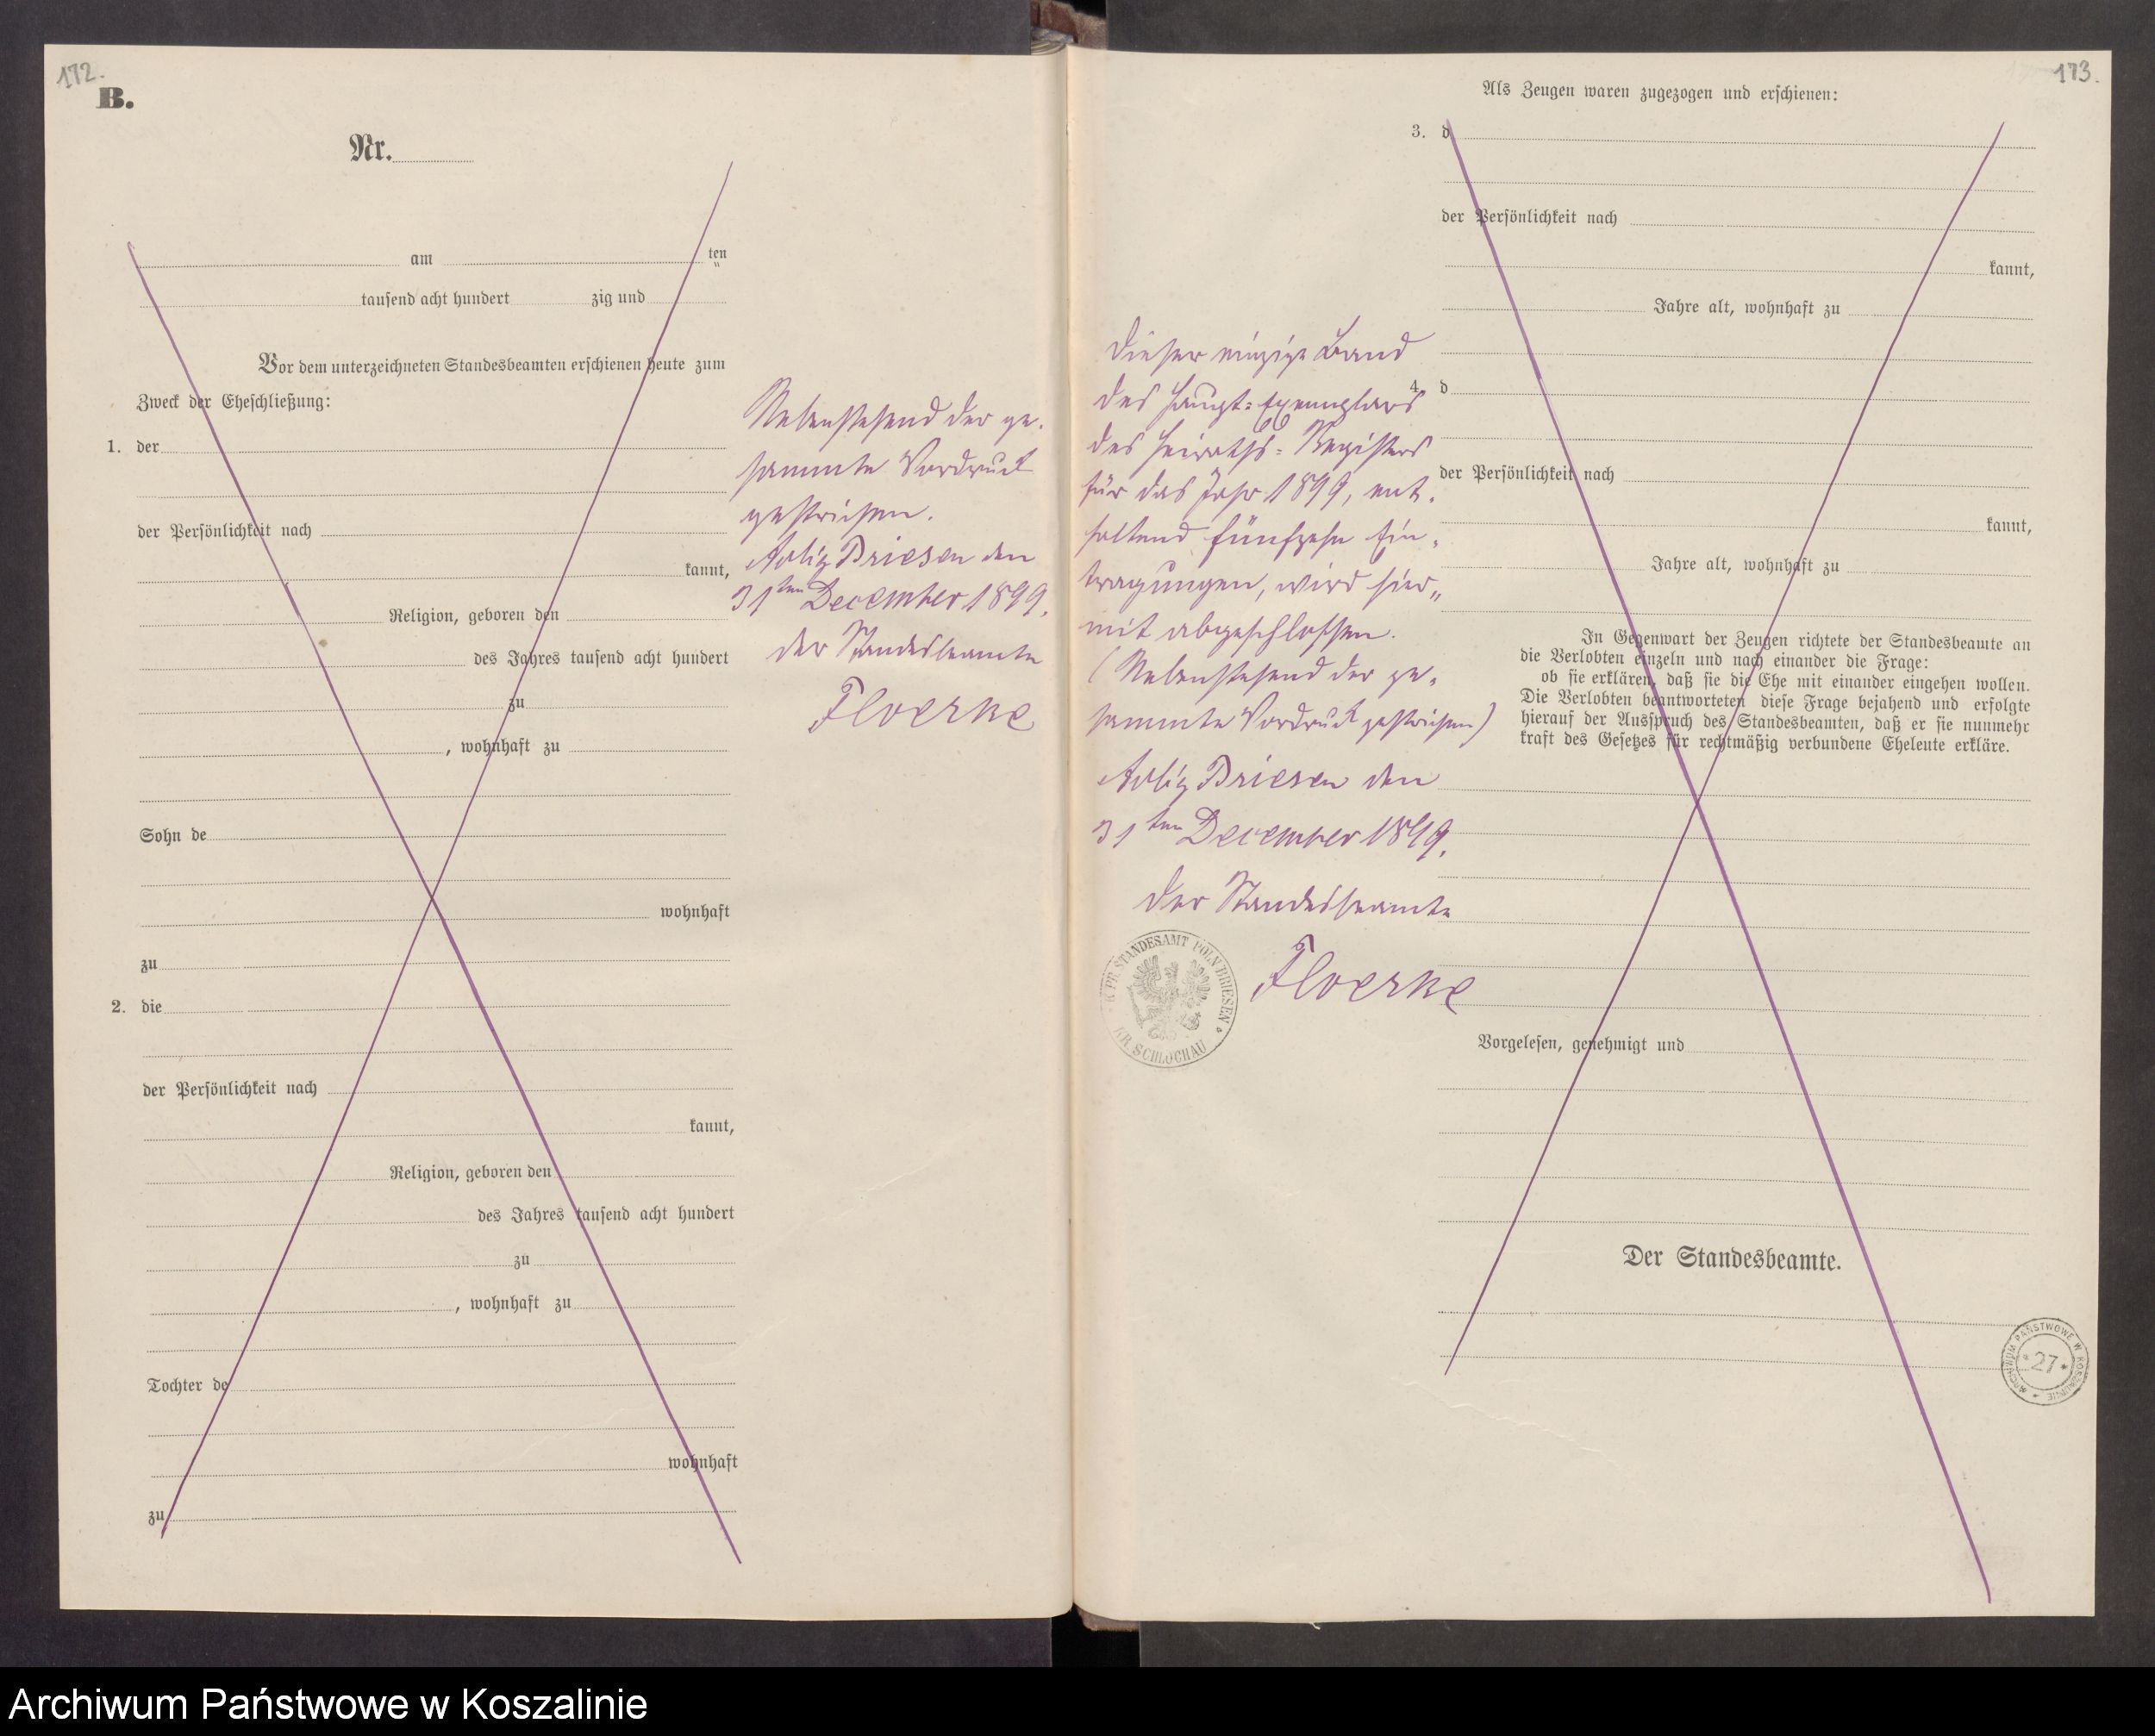 172.
B.
Nr.
am ten
tausend acht hundert zig und
Vor dem unterzeichneten Standesbeamten erschienen heute zum
Zweck der Eheschließung:
1. der
der Persönlichkeit nach
kannt,
Religion, geboren den
des Jahres tausend acht hundert
zu
, wohnhaft zu
Sohn de
wohnhaft
zu
2. die
der Persönlichkeit nach
kannt,
Religion, geboren den
des Jahres tausend acht hundert
zu
, wohnhaft zu
Tochter de
wohnhaft
zu
Nebenstehend der ge-
sammte Vordruck
gestrichen.
Adlig Briesen den
31ten December 1899.
der Standesbeamte
Floerke
173.
Dieser einzige Band
des Haupt=Exemplars
des Heiraths=Registers
für das Jahr 1899, ent-
haltend fünfzehn Ein-
tragungen, wird hier"
mit abgeschlossen.
(Nebenstehend der ge-
sammte Vordruck gestrichen)
Adlig Briesen den
31ten December 1899.
der Standesbeamte
Floerke
K. PR. STANDESAMT POLN. BRIESEN * KR. SCHLOCHAU
Als Zeugen waren zugezogen und erschienen:
3. d
der Persönlichkeit nach
kannt,
Jahre alt, wohnhaft zu
4. d
der Persönlichkeit nach
kannt,
Jahre alt, wohnhaft zu
In Gegenwart der Zeugen richtete der Standesbeamte an
die Verlobten einzeln und nach einander die Frage:
ob sie erklären, daß sie die Ehe mit einander eingehen wollen.
Die Verlobten beantworteten diese Frage bejahend und erfolgte
hierauf der Ausspruch des Standesbeamten, daß er sie nunmehr
kraft des Gesetzes für rechtmäßig verbundene Eheleute erkläre.
Vorgelesen, genehmigt und
Der Standesbeamte.
ARCHIWUM PAŃSTWOWE W KOSZALINIE *
* 27 *
Archiwum Państwowe w Koszalinie